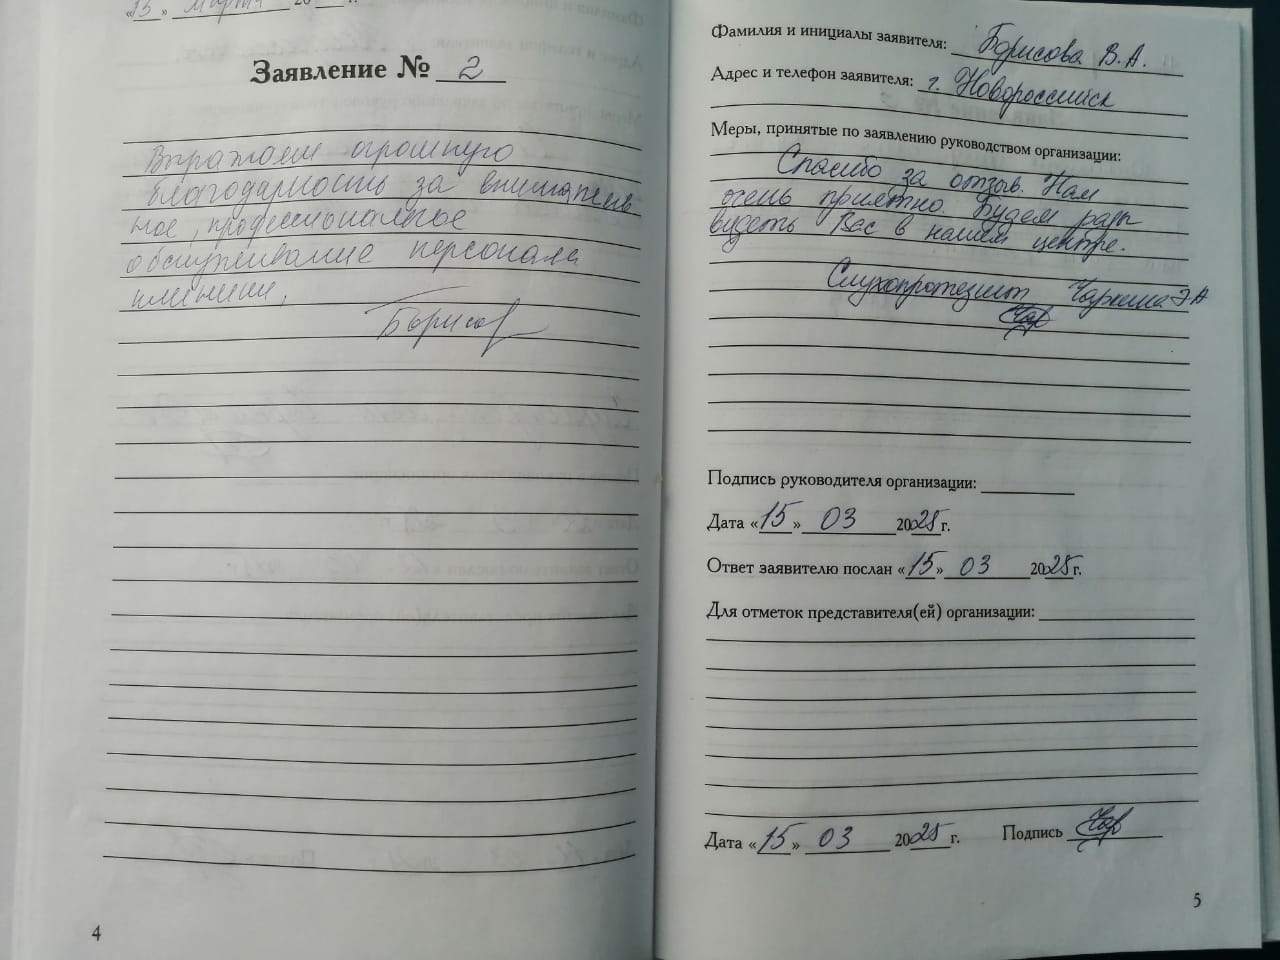 «15» марта 20 г.
Заявление № 2
Выражаем огромную
благодарность за вниматель
ное, профессиональное
обслуживание персонала
клиники.
Борисов
4
Фамилия и инициалы заявителя: Борисова В.А.
Адрес и телефон заявителя: г. Новороссийск
Меры, принятые по заявлению руководством организации:
Спасибо за отзыв. Нам
очень приятно. Будем рады
видеть Вас в нашем центре.
Слухопротезист Э А
Подпись руководителя организации:
Дата «15» 03 2025г.
Ответ заявителю послан «15» 03 2025г.
Для отметок представителя(ей) организации:
Дата «15» 03 2025 г. Подпись
5